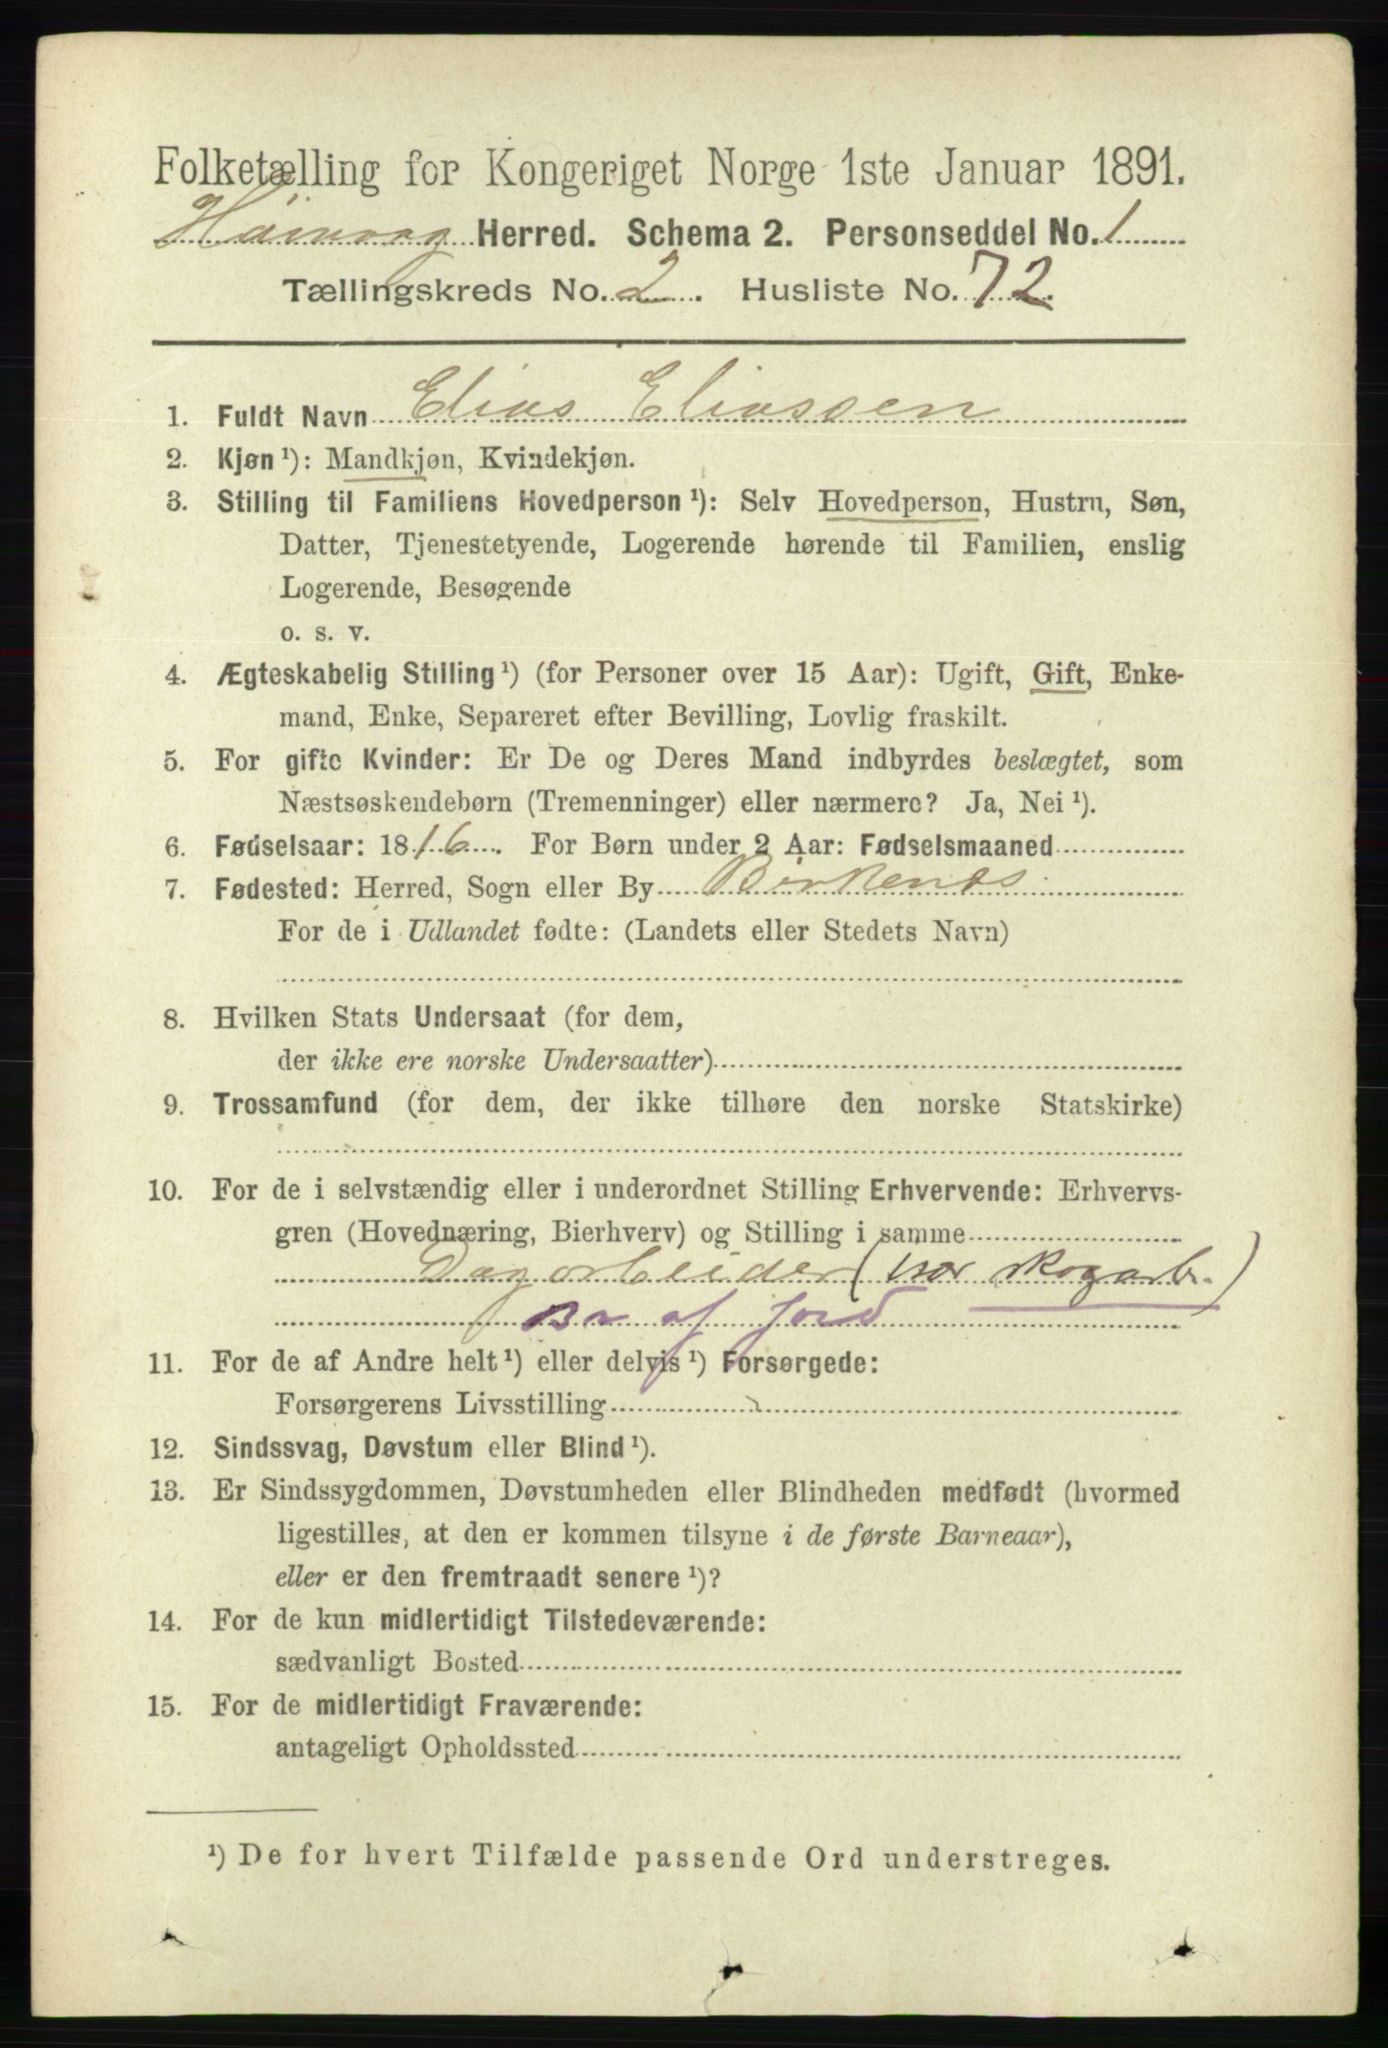 Folketælling for Kongeriget Norge 1ste Januar 1891.
Høivaag Herred. Schema 2. Personseddel No. 1
Tællingskreds No. 2. Husliste No. 72.
1. Fuldt Navn Elias Eliassen
2. Kjøn ¹): Mandkjøn, Kvindekjøn.
3. Stilling til Familiens Hovedperson ¹): Selv Hovedperson, Hustru, Søn,
Datter, Tjenestetyende, Logerende hørende til Familien, enslig
Logerende, Besøgende
o. s. v.
4. Ægteskabelig Stilling ¹) (for Personer over 15 Aar): Ugift, Gift, Enke-
mand, Enke, Separeret efter Bevilling, Lovlig fraskilt.
5. For gifte Kvinder: Er De og Deres Mand indbyrdes beslægtet, som
Næstsøskendebørn (Tremenninger) eller nærmere? Ja, Nei ¹).
6. Fødselsaar: 1816. For Børn under 2 Aar: Fødselsmaaned
7. Fødested: Herred, Sogn eller By Birkenæs
For de i Udlandet fødte: (Landets eller Stedets Navn)
8. Hvilken Stats Undersaat (for dem,
der ikke ere norske Undersaatter)
9. Trossamfund (for dem, der ikke tilhøre den norske Statskirke)
10. For de i selvstændig eller i underordnet Stilling Erhvervende: Erhvervs-
gren (Hovednæring, Bierhverv) og Stilling i samme
Dagarbeider (når skogarb.)
Br af Jord
11. For de af Andre helt ¹) eller delvis ¹) Forsørgede:
Forsørgerens Livsstilling
12. Sindssvag, Døvstum eller Blind ¹).
13. Er Sindssygdommen, Døvstumheden eller Blindheden medfødt (hvormed
ligestilles, at den er kommen tilsyne i de første Barneaar),
eller er den fremtraadt senere ¹)?
14. For de kun midlertidigt Tilstedeværende:
sædvanligt Bosted
15. For de midlertidigt Fraværende:
antageligt Opholdssted
¹) De for hvert Tilfælde passende Ord understreges.